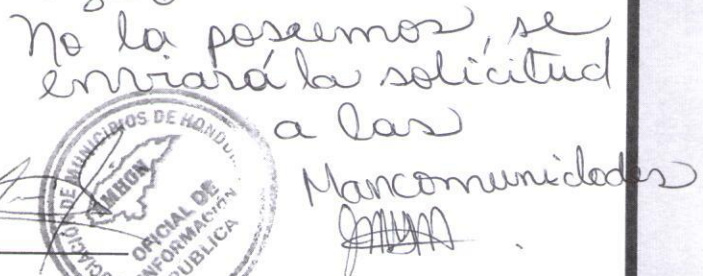 No la poseemos, se
enviará la solicitud
a las
Mancomunidades
ASOCIACIÓN DE MUNICIPIOS DE HONDU
AMHON
OFICIAL DE
INFORMACIÓN
PUBLICA